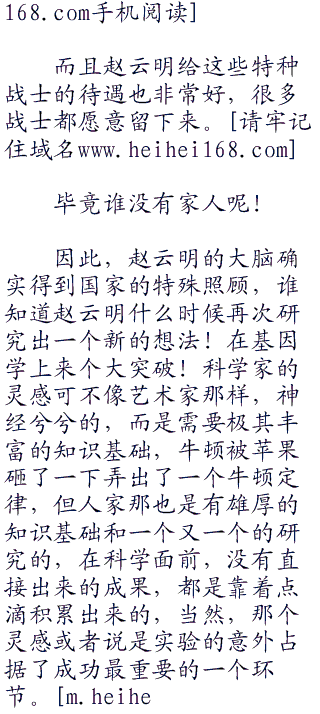 168.com手机阅读]
而且赵云明给这些特种
战士的待遇也非常好，很多
战士都愿意留下来。[请牢记
住域名www.heihei168.com]
毕竟谁没有家人呢！
因此，赵云明的大脑确
实得到国家的特殊照顾，谁
知道赵云明什么时候再次研
究出一个新的想法！在基因
学上来个大突破！科学家的
灵感可不像艺术家那样，神
经兮兮的，而是需要极其丰
富的知识基础，牛顿被苹果
砸了一下弄出了一个牛顿定
律，但人家那也是有雄厚的
知识基础和一个又一个的研
究的，在科学面前，没有直
接出来的成果，都是靠着点
滴积累出来的，当然，那个
灵感或者说是实验的意外占
据了成功最重要的一个环
节。[m.heihe